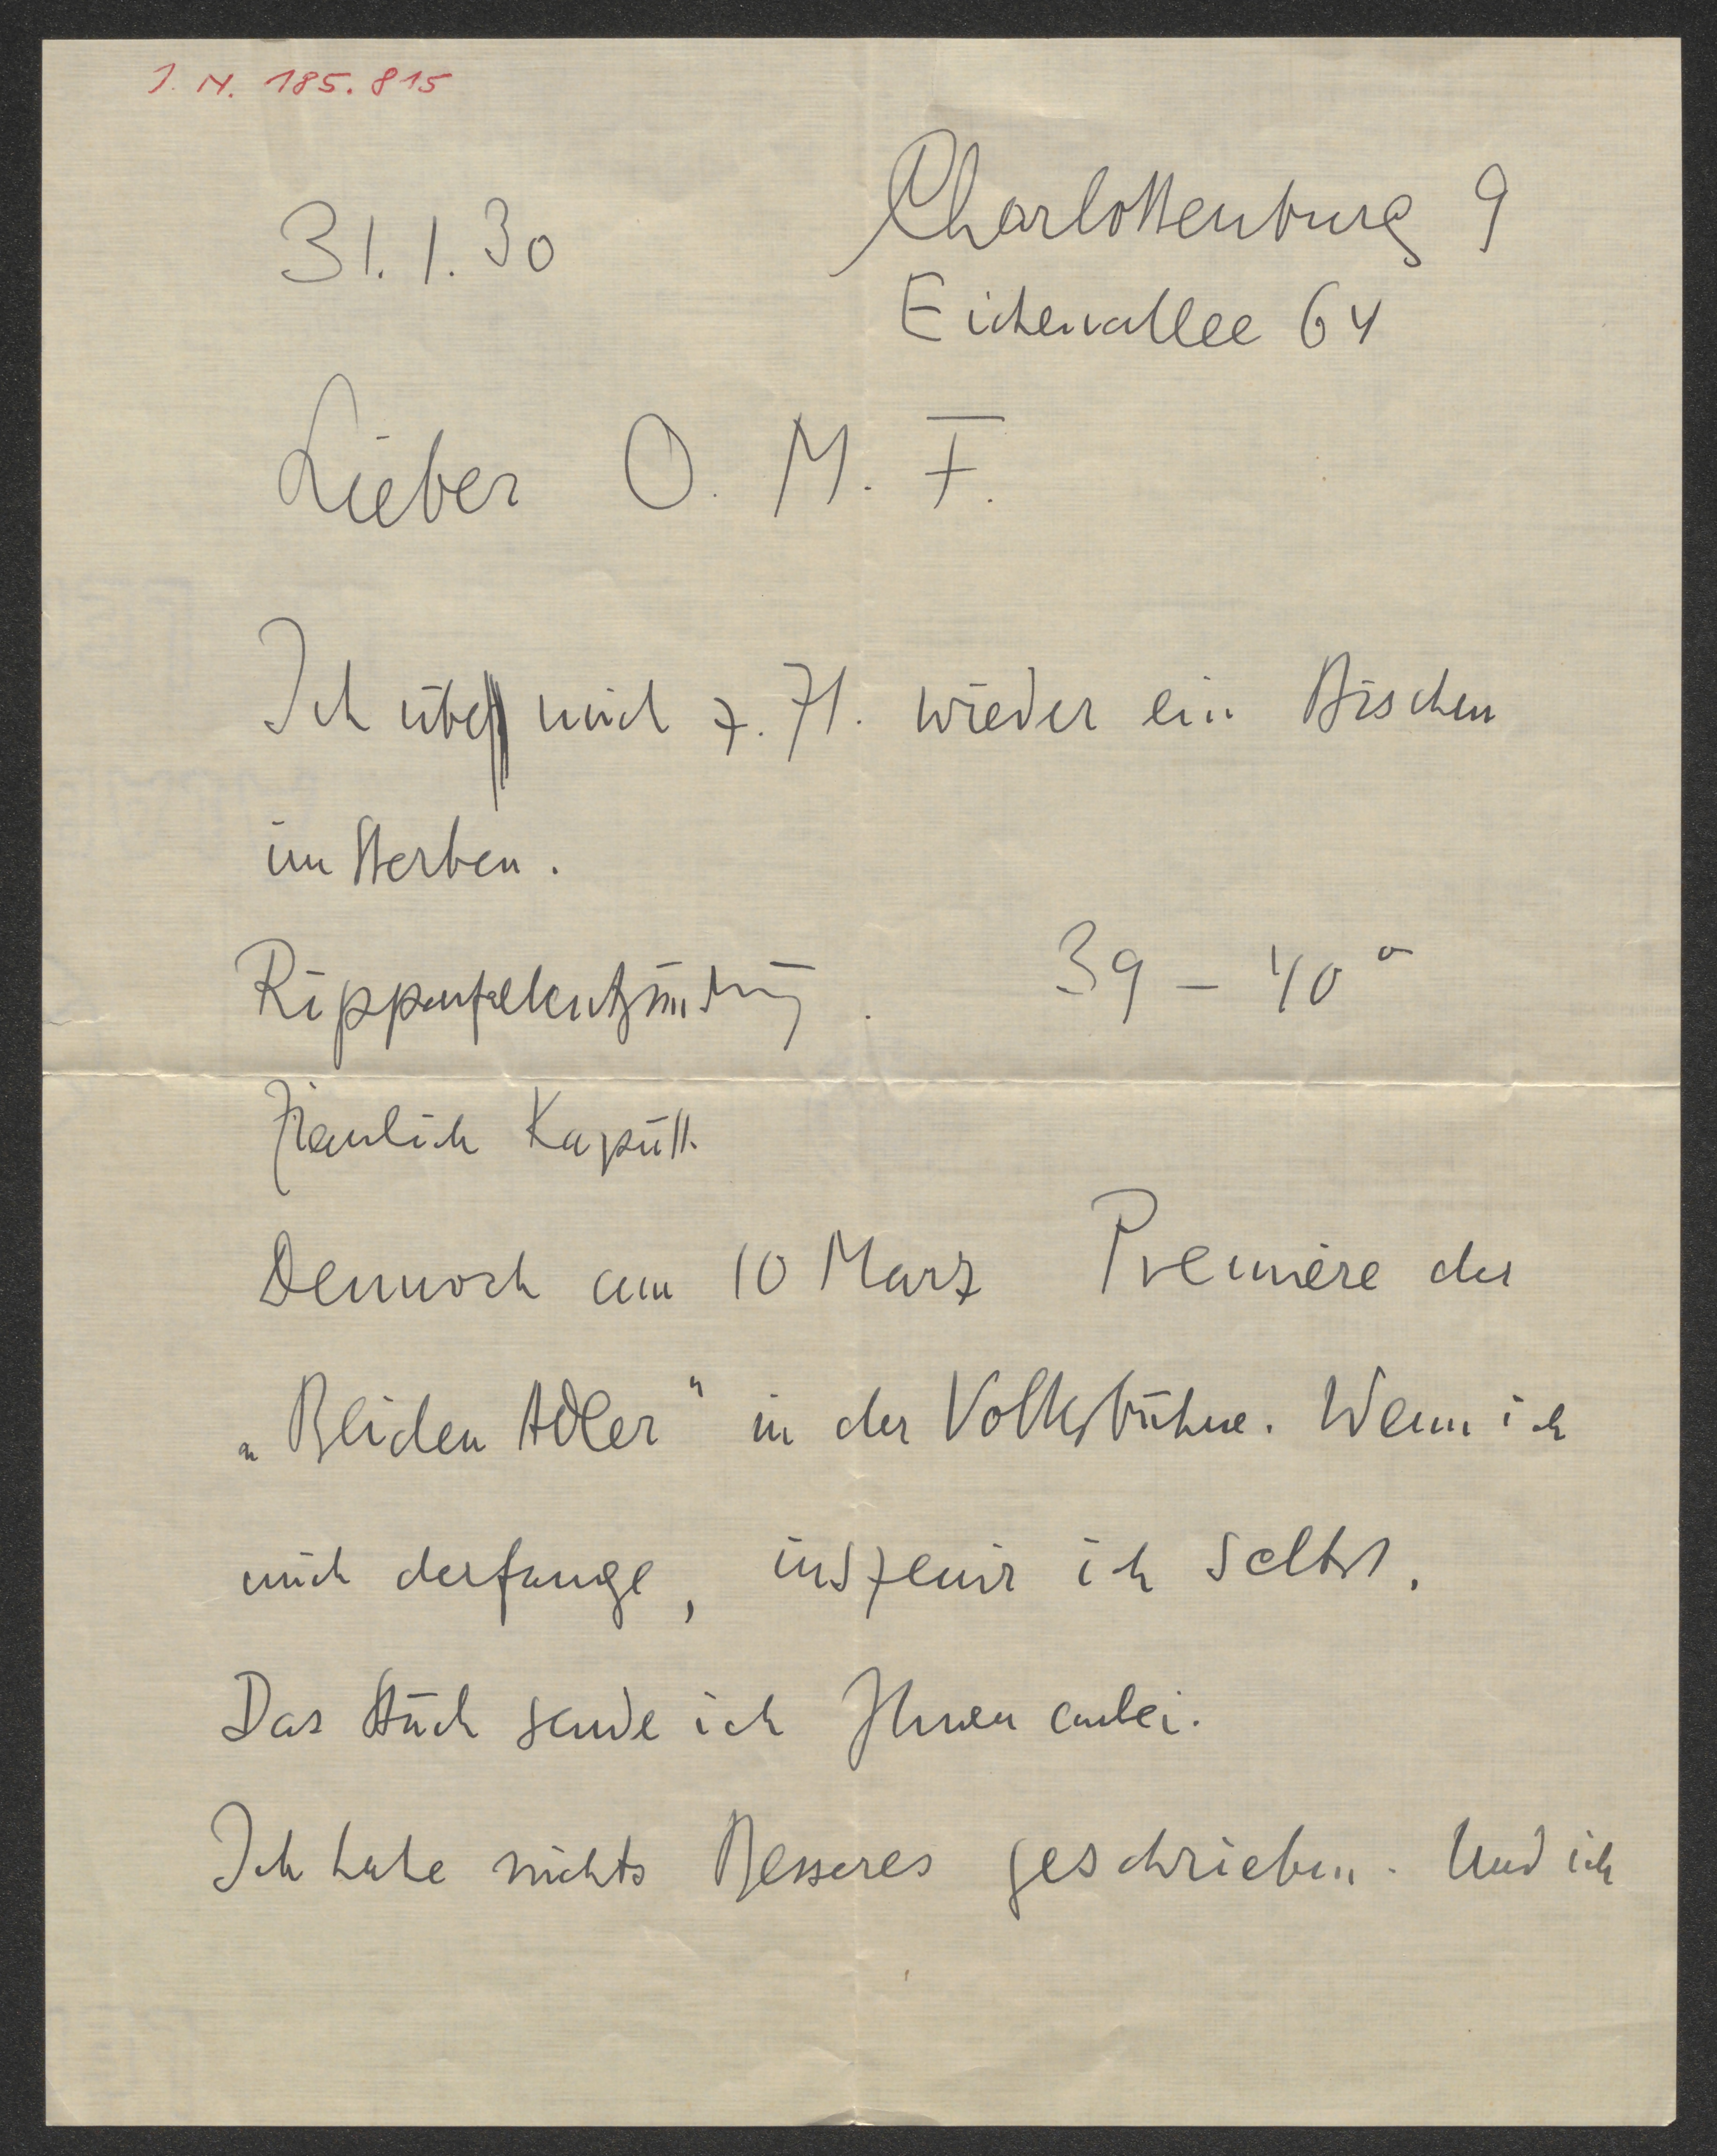 I. N. 185.815
31.1.30
Charlottenburg 9
Eichenallee 64
Lieber O. M. F.
Ich übe mich z. Zt. wieder ein Bischen
im Sterben.
Rippenfellentzündung. 39 – 40°
Ziemlich Kaputt.
Dennoch am 10 März Premiere der
„Beiden Adler" in der Volksbühne. Wenn ich
mich derfange, inszenir ich selbst.
Das Stück sende ich Ihnen anbei.
Ich habe nichts Besseres geschrieben. Und ich